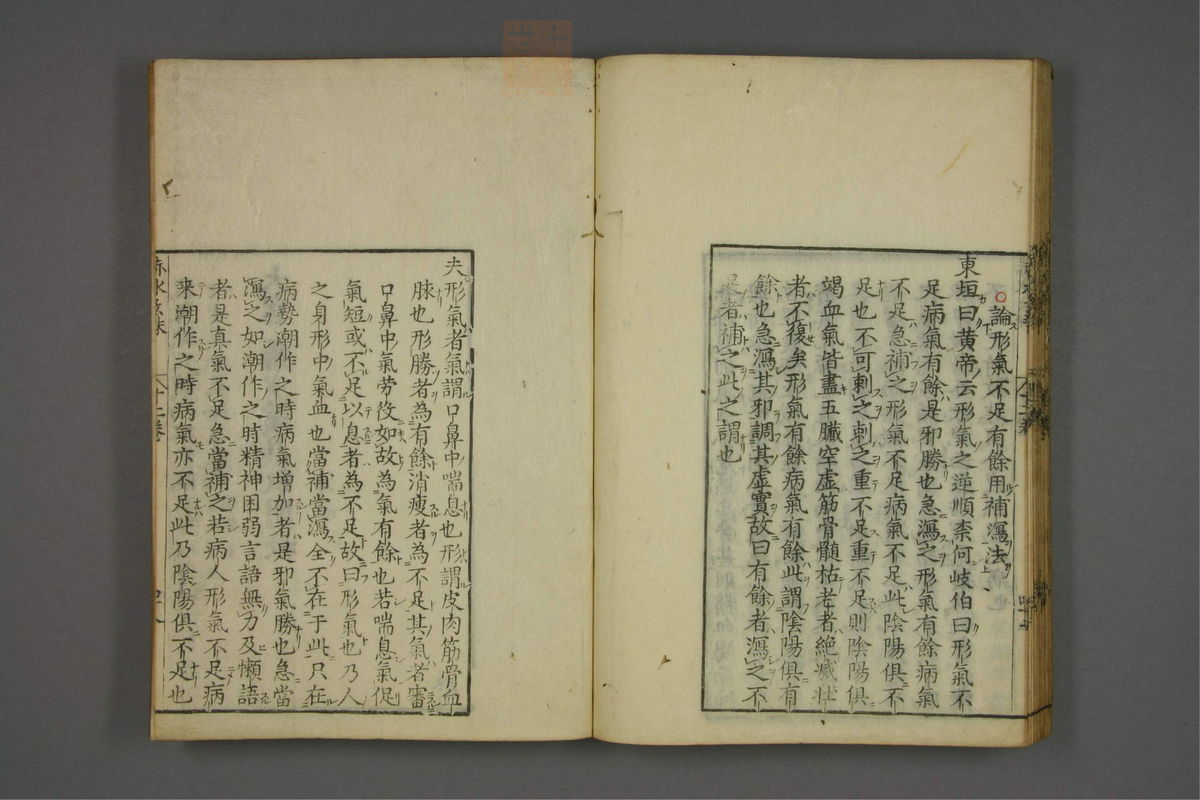 論形氣不足有餘用補瀉法
東垣曰黄帝云形氣之逆順柰何岐伯曰形氣不
足病氣有餘是邪勝也急瀉之形氣有餘病氣
不足急補之形氣不足病氣不足此陰陽俱不
足也不可刺之刺之重不足重不足則陰陽俱
竭血氣皆盡五臟空虚筋骨髓枯老者絶滅壮
者不復矣形氣有餘病氣有餘此謂陰陽俱有
餘也急瀉其邪調其虚實故曰有餘者瀉之不
足者補之此之謂也
夫形氣者氣謂口鼻中喘息也形謂皮肉筋骨血
脉也形勝者為有餘消痩者為不足其氣者審
口鼻中氣労役如故為氣有餘也若喘息氣促
氣短或不足以息者為不足故曰形氣也乃人
之身形中氣血也當補當瀉全不在于此只在
病勢潮作之時病氣増加者是邪氣勝也急當
瀉之如潮作之時精神困弱言語無力及懶語
者是真氣不足急當補之若病人形氣不足病
来潮作之時病氣亦不足此乃陰陽俱不足也
十二卷